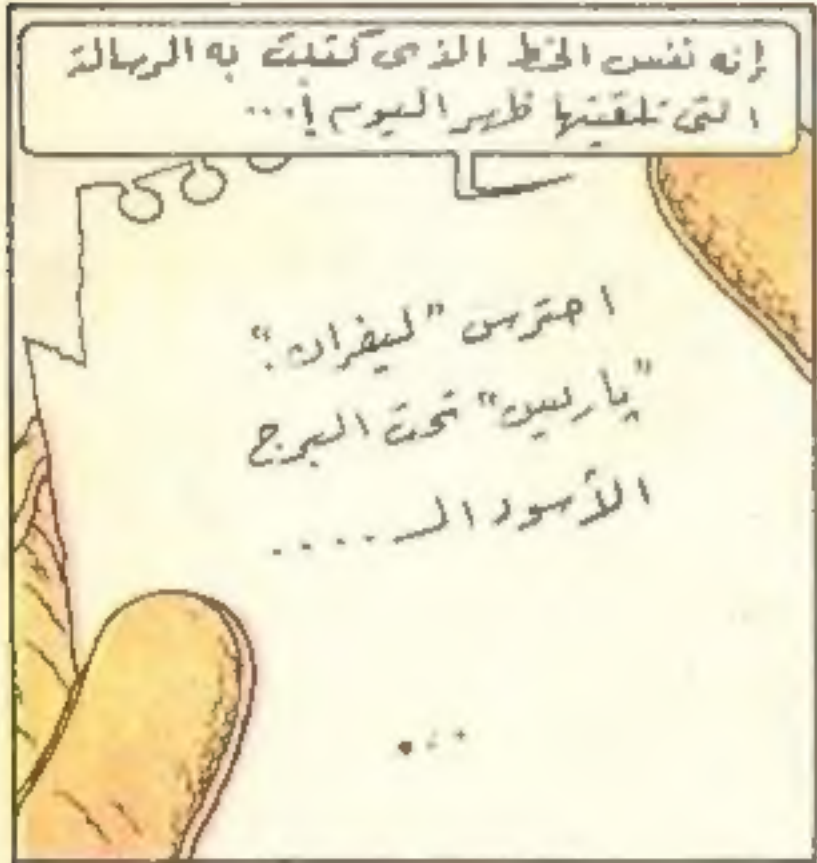 إنه نفس الخط الذى كتبت به الرسالة
التى تلقيتها ظهر اليوم !...
احترس "ليفران".
"باريس" تحت البرج
الأسود الـ ....
...